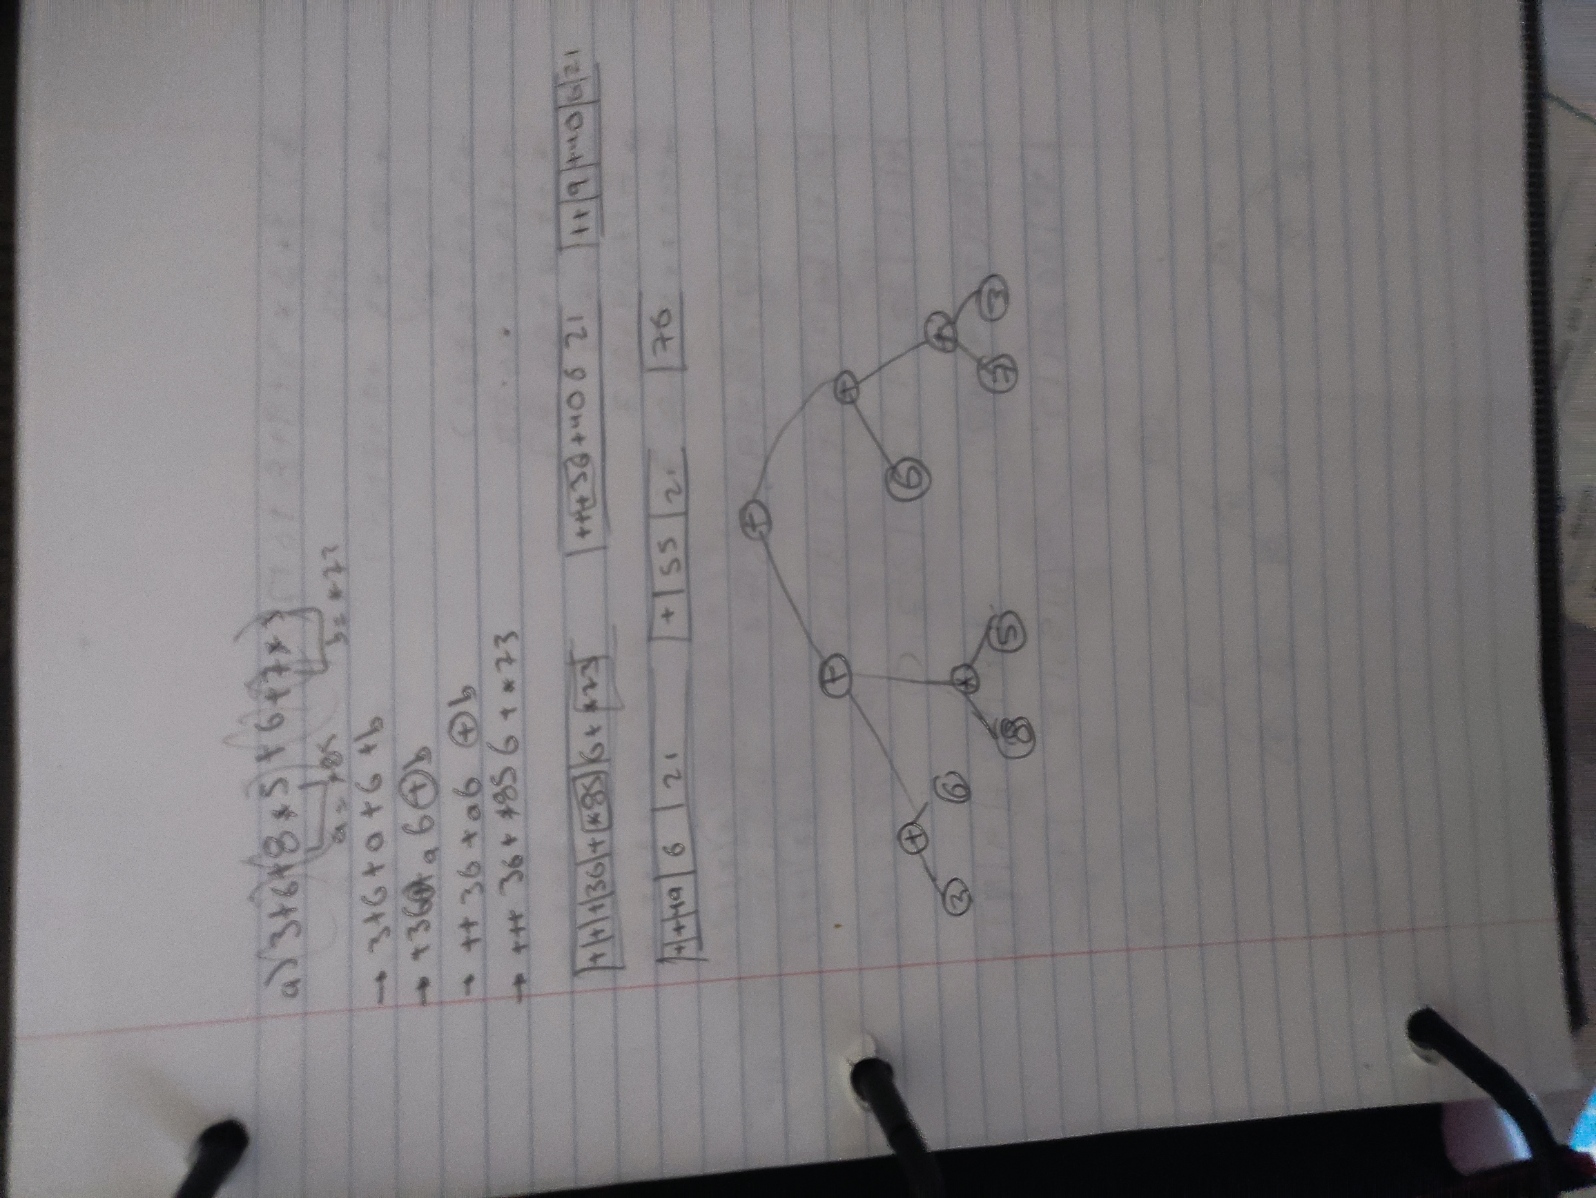 a) 3+6+8*5+6+7*3
a = *85 b = *73
→ 3+6+a+6+b
→ +36+a6+b
→ ++36+a6+b
→ +++36+*856+*73
+++36+*856+*73
+++36+40621
++9+40621
6 21
+ 55 21
76
+
+ +
+ * 6 *
3 6 8 5 7 3